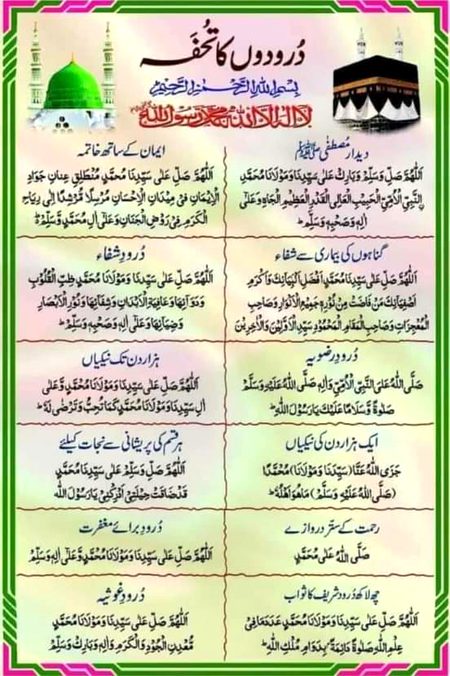 دُرودوں کا تحُفَہ
بِسْمِ اللّٰہِ الرَّحْمٰنِ الرَّحِیْمِ
لَا اِلٰہَ اِلَّا اللّٰہُ مُحَمَّدٌ رَّسُوْلُ اللّٰہِ
دیدار مُصطفٰی ﷺ
اَللّٰھُمَّ صَلِّ وَسَلِّمْ وَبَارِکْ عَلٰی سَیِّدِنَا مُحَمَّدِ
نِالنَّبِیِّ الْاُمِّیِّ الْحَبِیْبِ الْعَالِی الْقَدْرِ الْعَظِیْمِ الْجَاہِ وَعَلٰی
اٰلِہٖ وَصَحْبِہٖ وَسَلِّمْ ط
ایمان کے ساتھ خاتمہ
اَللّٰھُمَّ صَلِّ عَلٰی سَیِّدِنَا مُحَمَّدٍ مُنْطَلِقِ عِنَانِ جَوَادِ
الْاِیْمَانِ فِیْ مِیْدَانِ الْاِحْسَانِ مُرْسِلًا مُّرْشِدًا اِلٰی رِیَاحِ
الْکَرَمِ فِیْ رَوْضِ الْجِنَانِ وَعَلٰی اٰلِ مُحَمَّدٍ وَّسَلِّمْ ط
گناہوں کی بیماری سے شفاء
اَللّٰھُمَّ صَلِّ عَلٰی سَیِّدِنَا مُحَمَّدٍ اَفْضَلِ اَنْبِیَائِکَ وَاَکْرَمِ
اَصْفِیَائِکَ مَنْ فَاضَتْ مِنْ نُّوْرِہٖ جَمِیْعُ الْاَنْوَارِ وَصَاحِبِ
الْمُعْجِزَاتِ وَصَاحِبِ الْمَقَامِ الْمَحْمُوْدِ سَیِّدِ الْاَوَّلِیْنَ وَالْاٰخِرِیْنَ
دُرودِ شفاء
اَللّٰھُمَّ صَلِّ عَلٰی سَیِّدِنَا وَمَوْلَانَا مُحَمَّدٍ طِبِّ الْقُلُوْبِ
وَدَوَآئِھَا وَعَافِیَۃِ الْاَبْدَانِ وَشِفَآئِھَا وَنُوْرِ الْاَبْصَارِ
وَضِیَآئِھَا وَعَلٰی اٰلِہٖ وَصَحْبِہٖ وَسَلِّمْ ط
دُرودِ رضویہ
صَلَّی اللّٰہُ عَلَی النَّبِیِّ الْاُمِّیِّ وَاٰلِہٖ صَلَّی اللّٰہُ عَلَیْہِ وَسَلَّمَ
صَلٰوۃً وَّسَلَامًا عَلَیْکَ یَارَسُوْلَ اللّٰہِ ط
ہزار دن تک نیکیاں
اَللّٰھُمَّ صَلِّ عَلٰی سَیِّدِنَا وَمَوْلَانَا مُحَمَّدٍ وَّعَلٰی
اٰلِ سَیِّدِنَا وَمَوْلَانَا مُحَمَّدٍ کَمَا تُحِبُّ وَتَرْضٰی لَہٗ ط
ایک ہزار دن کی نیکیاں
جَزَی اللّٰہُ عَنَّا (سَیِّدَنَا وَمَوْلَانَا) مُحَمَّدًا
(صَلَّی اللّٰہُ عَلَیْہِ وَسَلَّمَ) مَاھُوَ اَھْلُہٗ ط
ہر قسم کی پریشانی سے نجات کیلئے
اَللّٰھُمَّ صَلِّ وَسَلِّمْ عَلٰی سَیِّدِنَا مُحَمَّدٍ
قَدْ ضَاقَتْ حِیْلَتِیْ اَدْرِکْنِیْ یَارَسُوْلَ اللّٰہ
رحمت کے ستّر دروازے
صَلَّی اللّٰہُ عَلٰی مُحَمَّدٍ
دُرود برائے مغفرت
اَللّٰھُمَّ صَلِّ عَلٰی سَیِّدِنَا وَمَوْلَانَا مُحَمَّدٍ وَّعَلٰی اٰلِہٖ وَسَلِّمْ
چھ لاکھ دُرود شریف کا ثواب
اَللّٰھُمَّ صَلِّ عَلٰی سَیِّدِنَا وَمَوْلَانَا مُحَمَّدٍ عَدَدَ مَا فِیْ
عِلْمِ اللّٰہِ صَلٰوۃً دَآئِمَۃً بِۢدَوَامِ مُلْکِ اللّٰہِ ط
دُرودِ غوثیہ
اَللّٰھُمَّ صَلِّ عَلٰی سَیِّدِنَا وَمَوْلَانَا مُحَمَّدٍ
مَّعْدِنِ الْجُوْدِ وَالْکَرَمِ وَاٰلِہٖ وَبَارِکْ وَسَلِّمْ